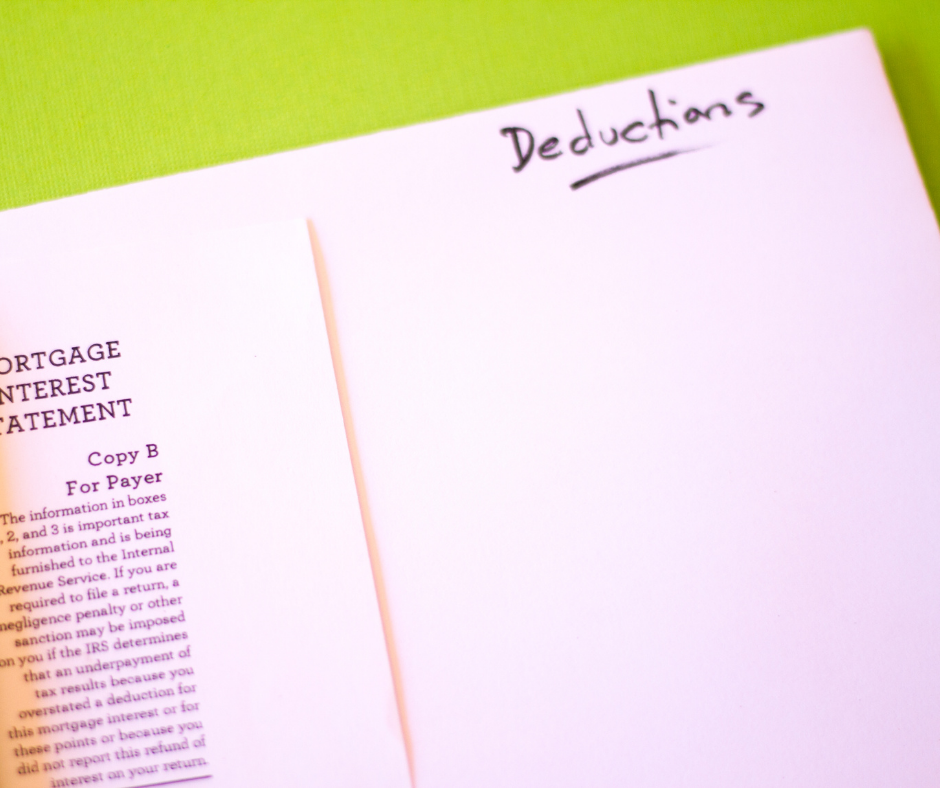 Deductions
ORTGAGE
NTEREST
TATEMENT
Copy B
For Payer
The information in boxes
, 2, and 3 is important tax
information and is being
furnished to the Internal
Revenue Service. If you are
required to file a return, a
negligence penalty or other
sanction may be imposed
on you if the IRS determines
that an underpayment of
tax results because you
overstated a deduction for
this mortgage interest or for
these points or because you
did not report this refund of
interest on your return.